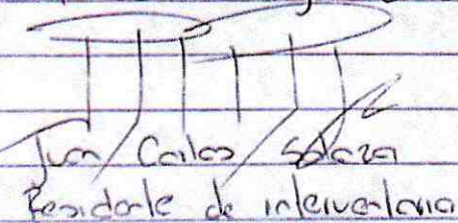 Juan Carlos Salazar
Residente de interventoria